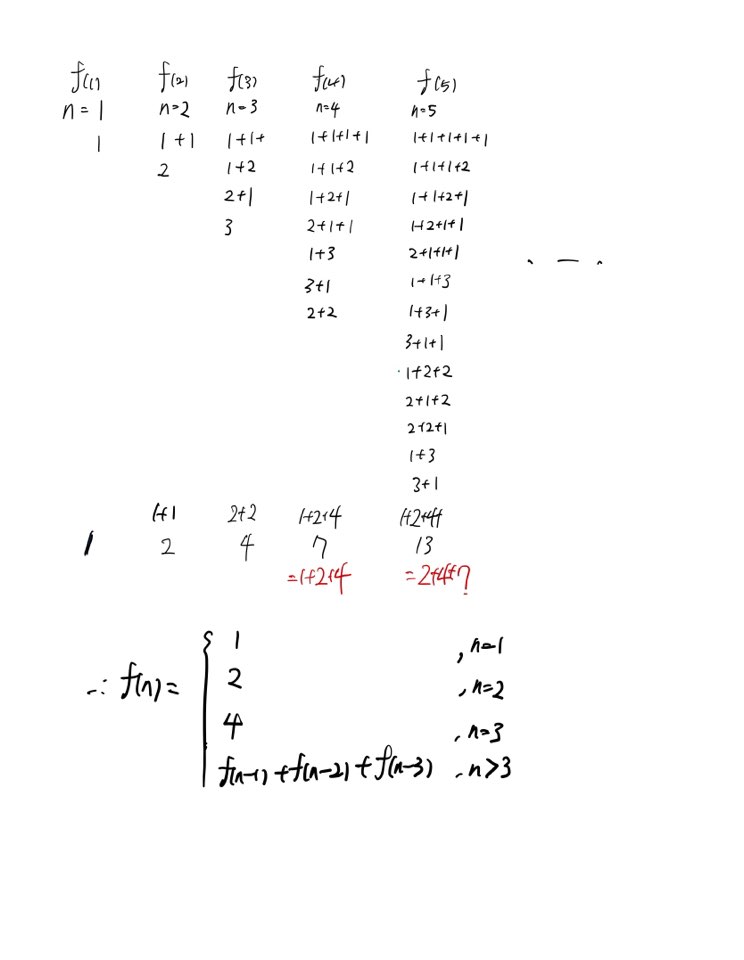 f(1) f(2) f(3) f(4) f(5)
n=1 n=2 n=3 n=4 n=5
1 1+1 1+1+ 1+1+1+1 1+1+1+1+1
2 1+2 1+1+2 1+1+1+2
2+1 1+2+1 1+1+2+1
3 2+1+1 1+2+1+1
1+3 2+1+1+1 . — .
3+1 1+1+3
2+2 1+3+1
3+1+1
1+2+2
2+1+2
2+2+1
1+3
3+1
1+1 2+2 1+2+4
1 2 4 7 13
=1+2+4 =2+4+7
∴ f(n)= { 1 , n=1
2 , n=2
4 , n=3
f(n-1)+f(n-2)+f(n-3) , n>3